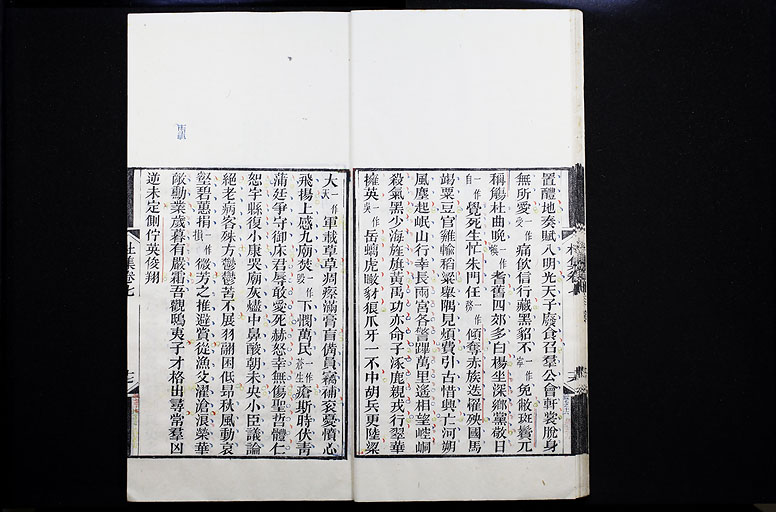 置醴地奏賦入明光天子廢食召羣公會軒裳脫身
無所愛一作受痛飲信行藏黑貂不一作寧免敝斑鬢兀
稱觴杜曲晩一作換耆舊四郊多白楊坐深鄉黨敬日
一作自覺死生忙朱門任一作務傾奪赤族迭罹殃國馬
竭粟豆官雞輸稻粱舉隅見煩費引古惜興亡河朔
風塵起岷山行幸長兩宮各警蹕萬里遙相望崆峒
殺氣黑少海旌旗黃禹功亦命子涿鹿親戎行翠華
擁英一作吳岳螭虎噉豺狼爪牙一不中胡兵更陸梁
大一作天軍載草草凋瘵滿膏肓備員竊補衮憂憤心
飛揚上感九廟焚一作毀下憫萬民一作蒼生瘡斯時伏青
蒲廷爭守御床君辱敢愛死赫怒幸無傷聖哲體仁
恕宇縣復小康哭廟灰燼中鼻酸朝未央小臣議論
絕老病客殊方鬱鬱苦不展羽翮困低昂秋風動哀
壑碧蕙捐一作損微芳之推避賞從漁父濯滄浪榮華
敵勳業歲暮有嚴霜吾觀鴟夷子才格出尋常羣凶
逆未定側佇英俊翔
杜集卷七